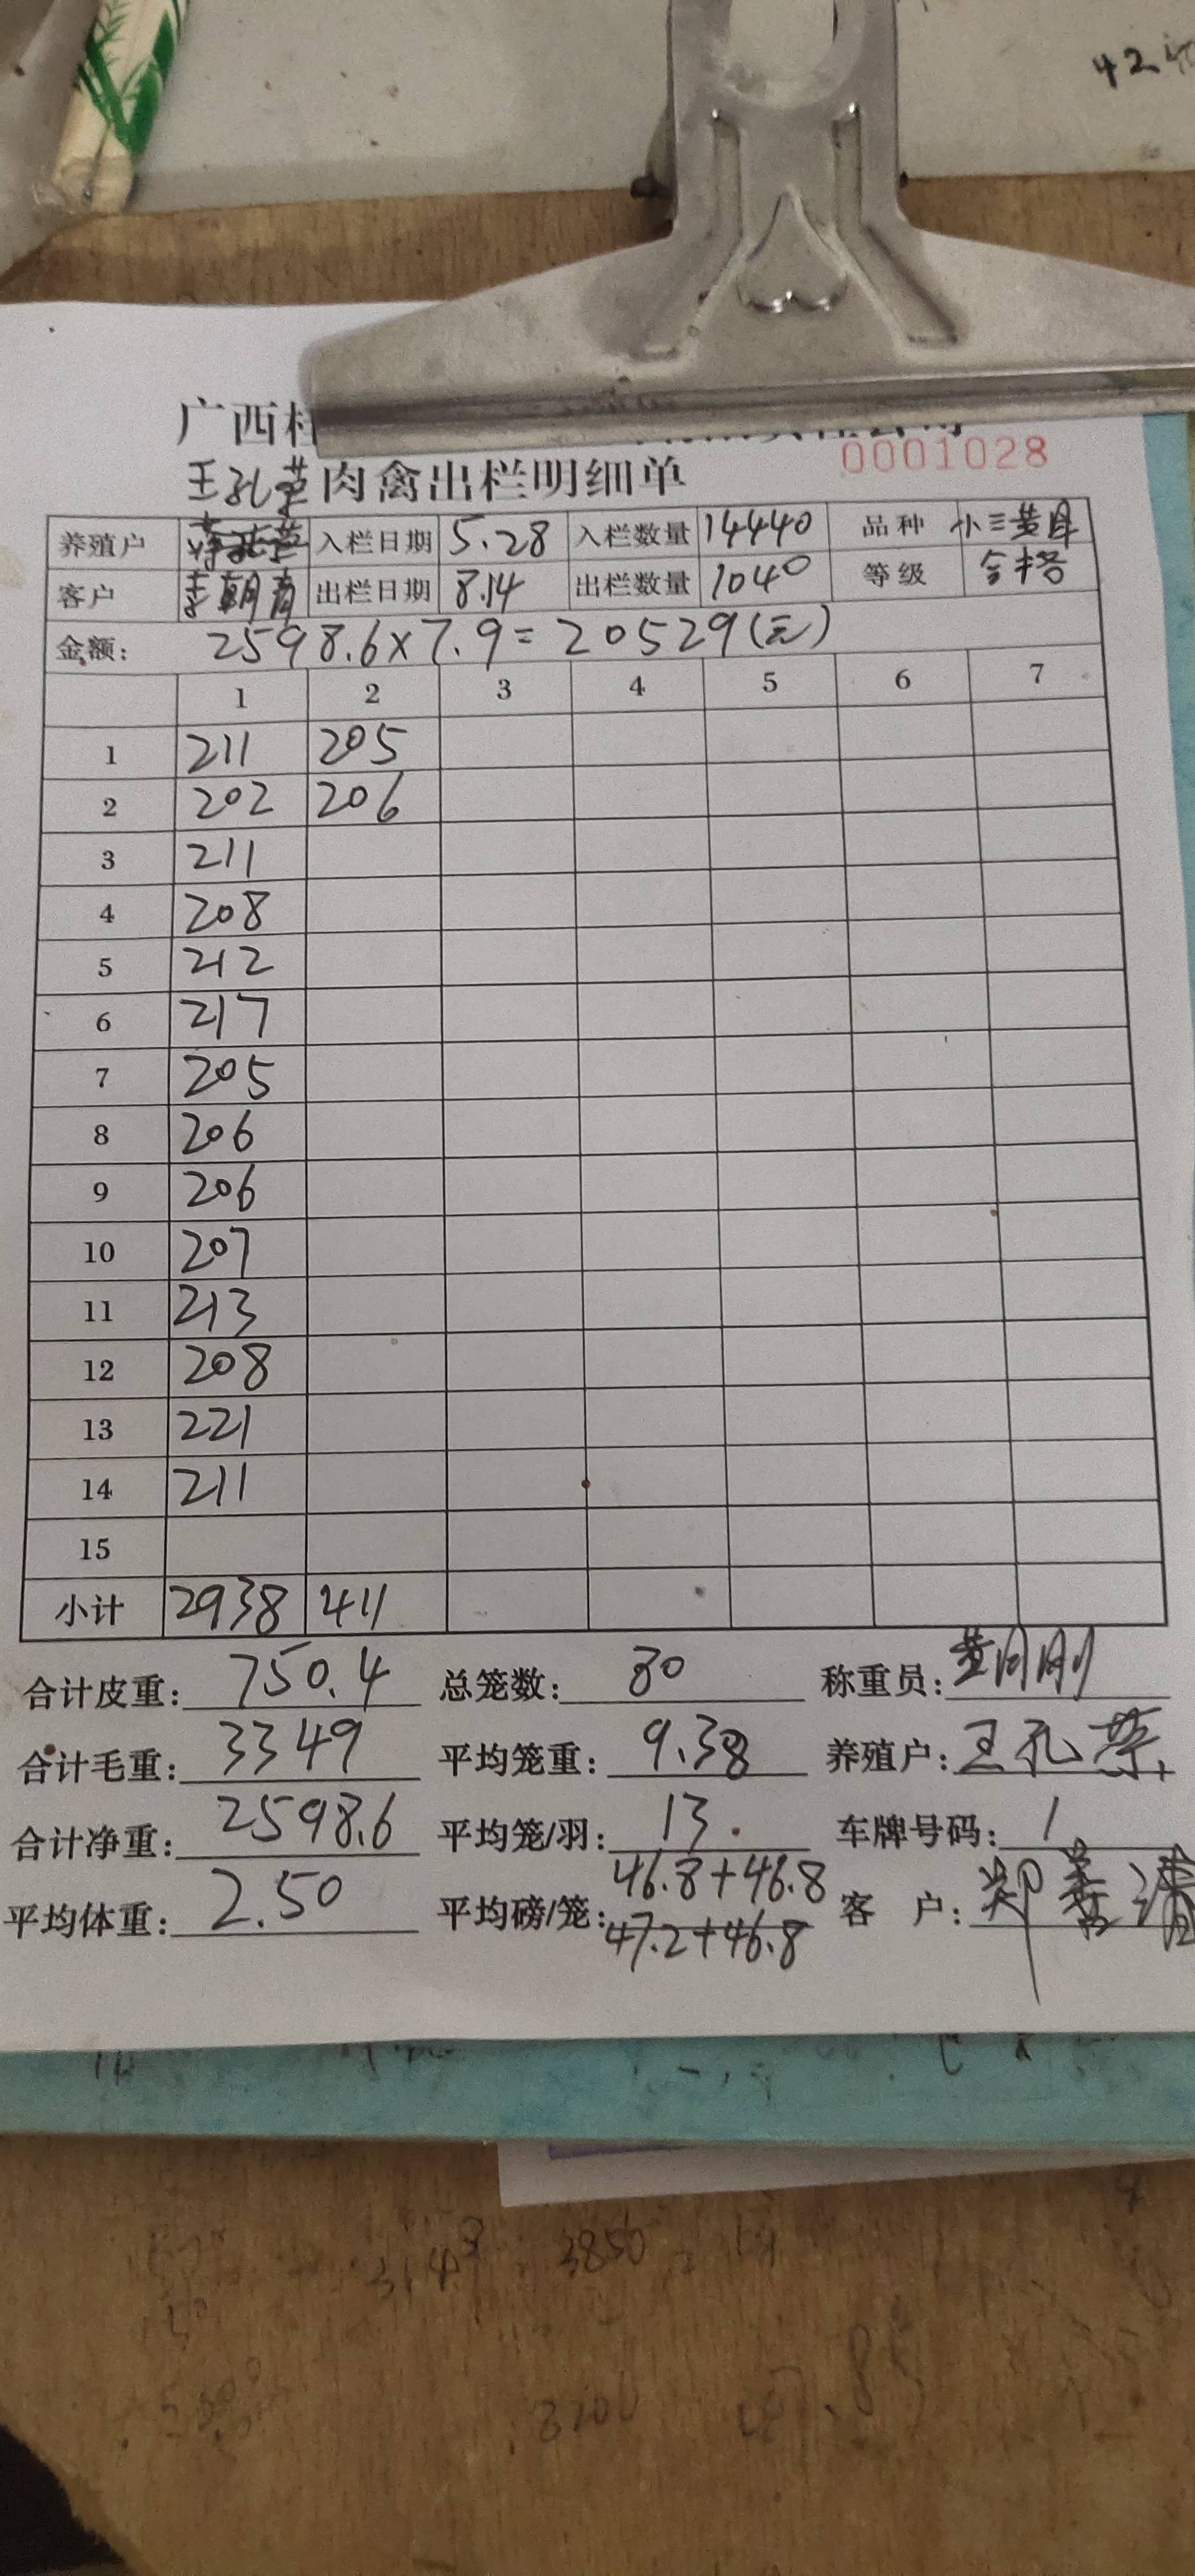 42
广西桂
0001028
王孔荣 肉禽出栏明细单
养殖户 入栏日期 5.28 入栏数量 14440 品种 小三黄母
客户 出栏日期 8.14 出栏数量 1040 等级 合格
金额: 2598.6×7.9=20529(元)
1 2 3 4 5 6 7
1 211 205
2 202 206
3 211
4 208
5 212
6 217
7 205
8 206
9 206
10 207
11 213
12 208
13 221
14 211
15
小计 2938 411
合计皮重: 750.4 总笼数: 80 称重员: 黄月刚
合计毛重: 3349 平均笼重: 9.38 养殖户: 王孔荣
合计净重: 2598.6 平均笼/羽: 13. 车牌号码: 1
平均体重: 2.50 平均磅/笼: 46.8+46.8 客 户:
47.2+46.8
3850